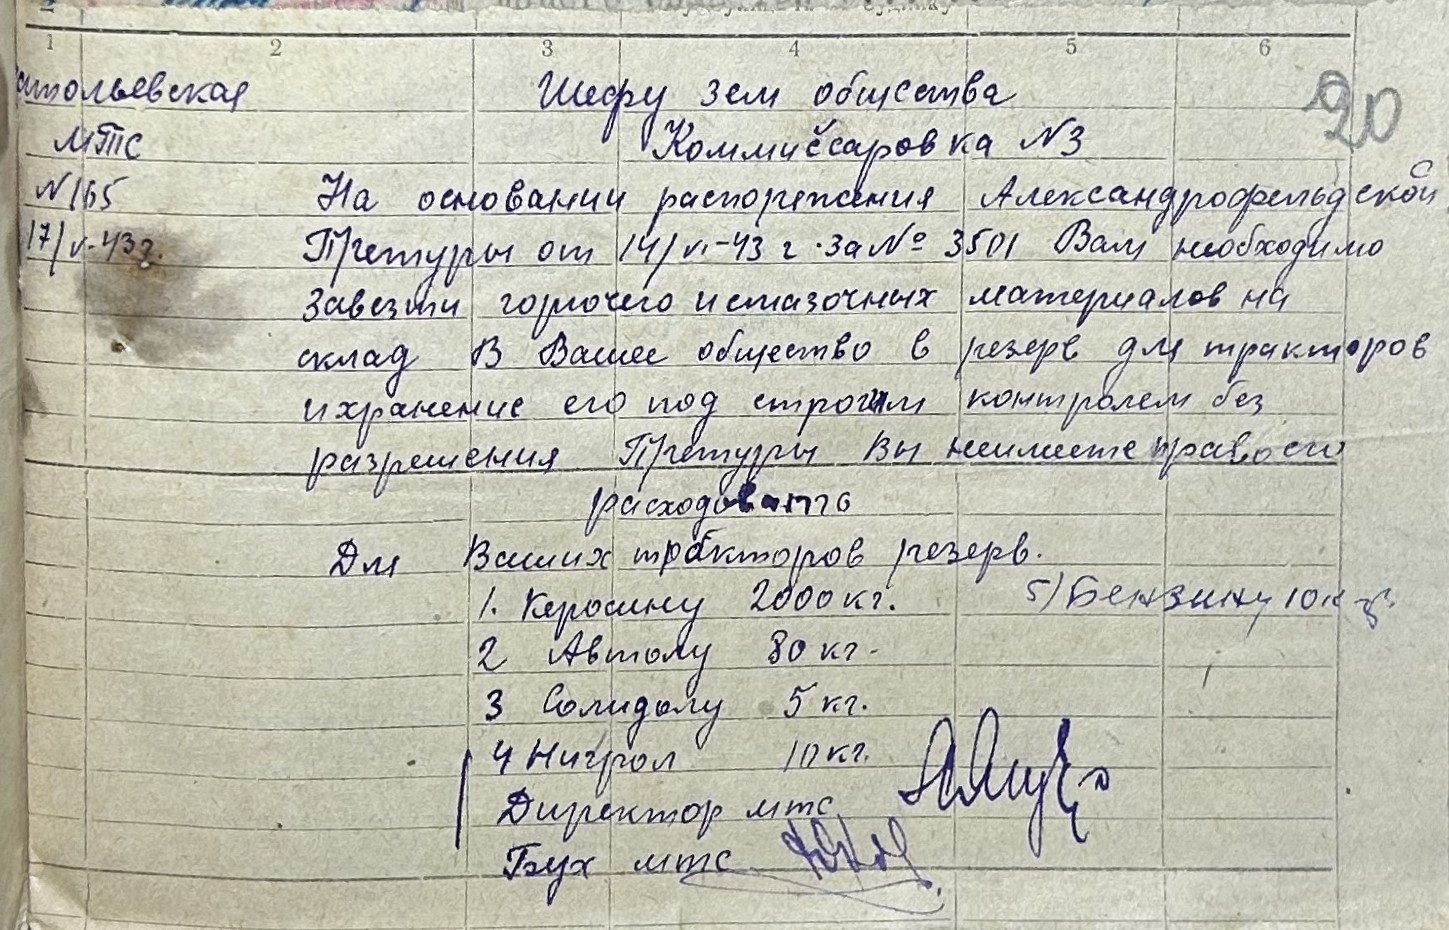 1 2 3 4 5 6
20
Шефу зем общества
МТС Коммиссаровка N3
N 165 На основании распоряжения Александрофельдской
17/VI-43г. Претуры от 14/VI-43 г. за № 3501 Вам необходимо
завезти горючего и смазочных материалов на
склад В Вашее общество в резерв для тракторов
и хранение его под строгим контролем без
разрешения Претуры Вы неимеете право его
расходовать
Для Ваших тракторов резерв.
1. Керосину 2000 кг. 5) Бензину 10 кг
2 Автолу 80 кг.
3 Солидолу 5 кг.
4 Нигрол 10 кг.
Директор мтс
Бух мтс